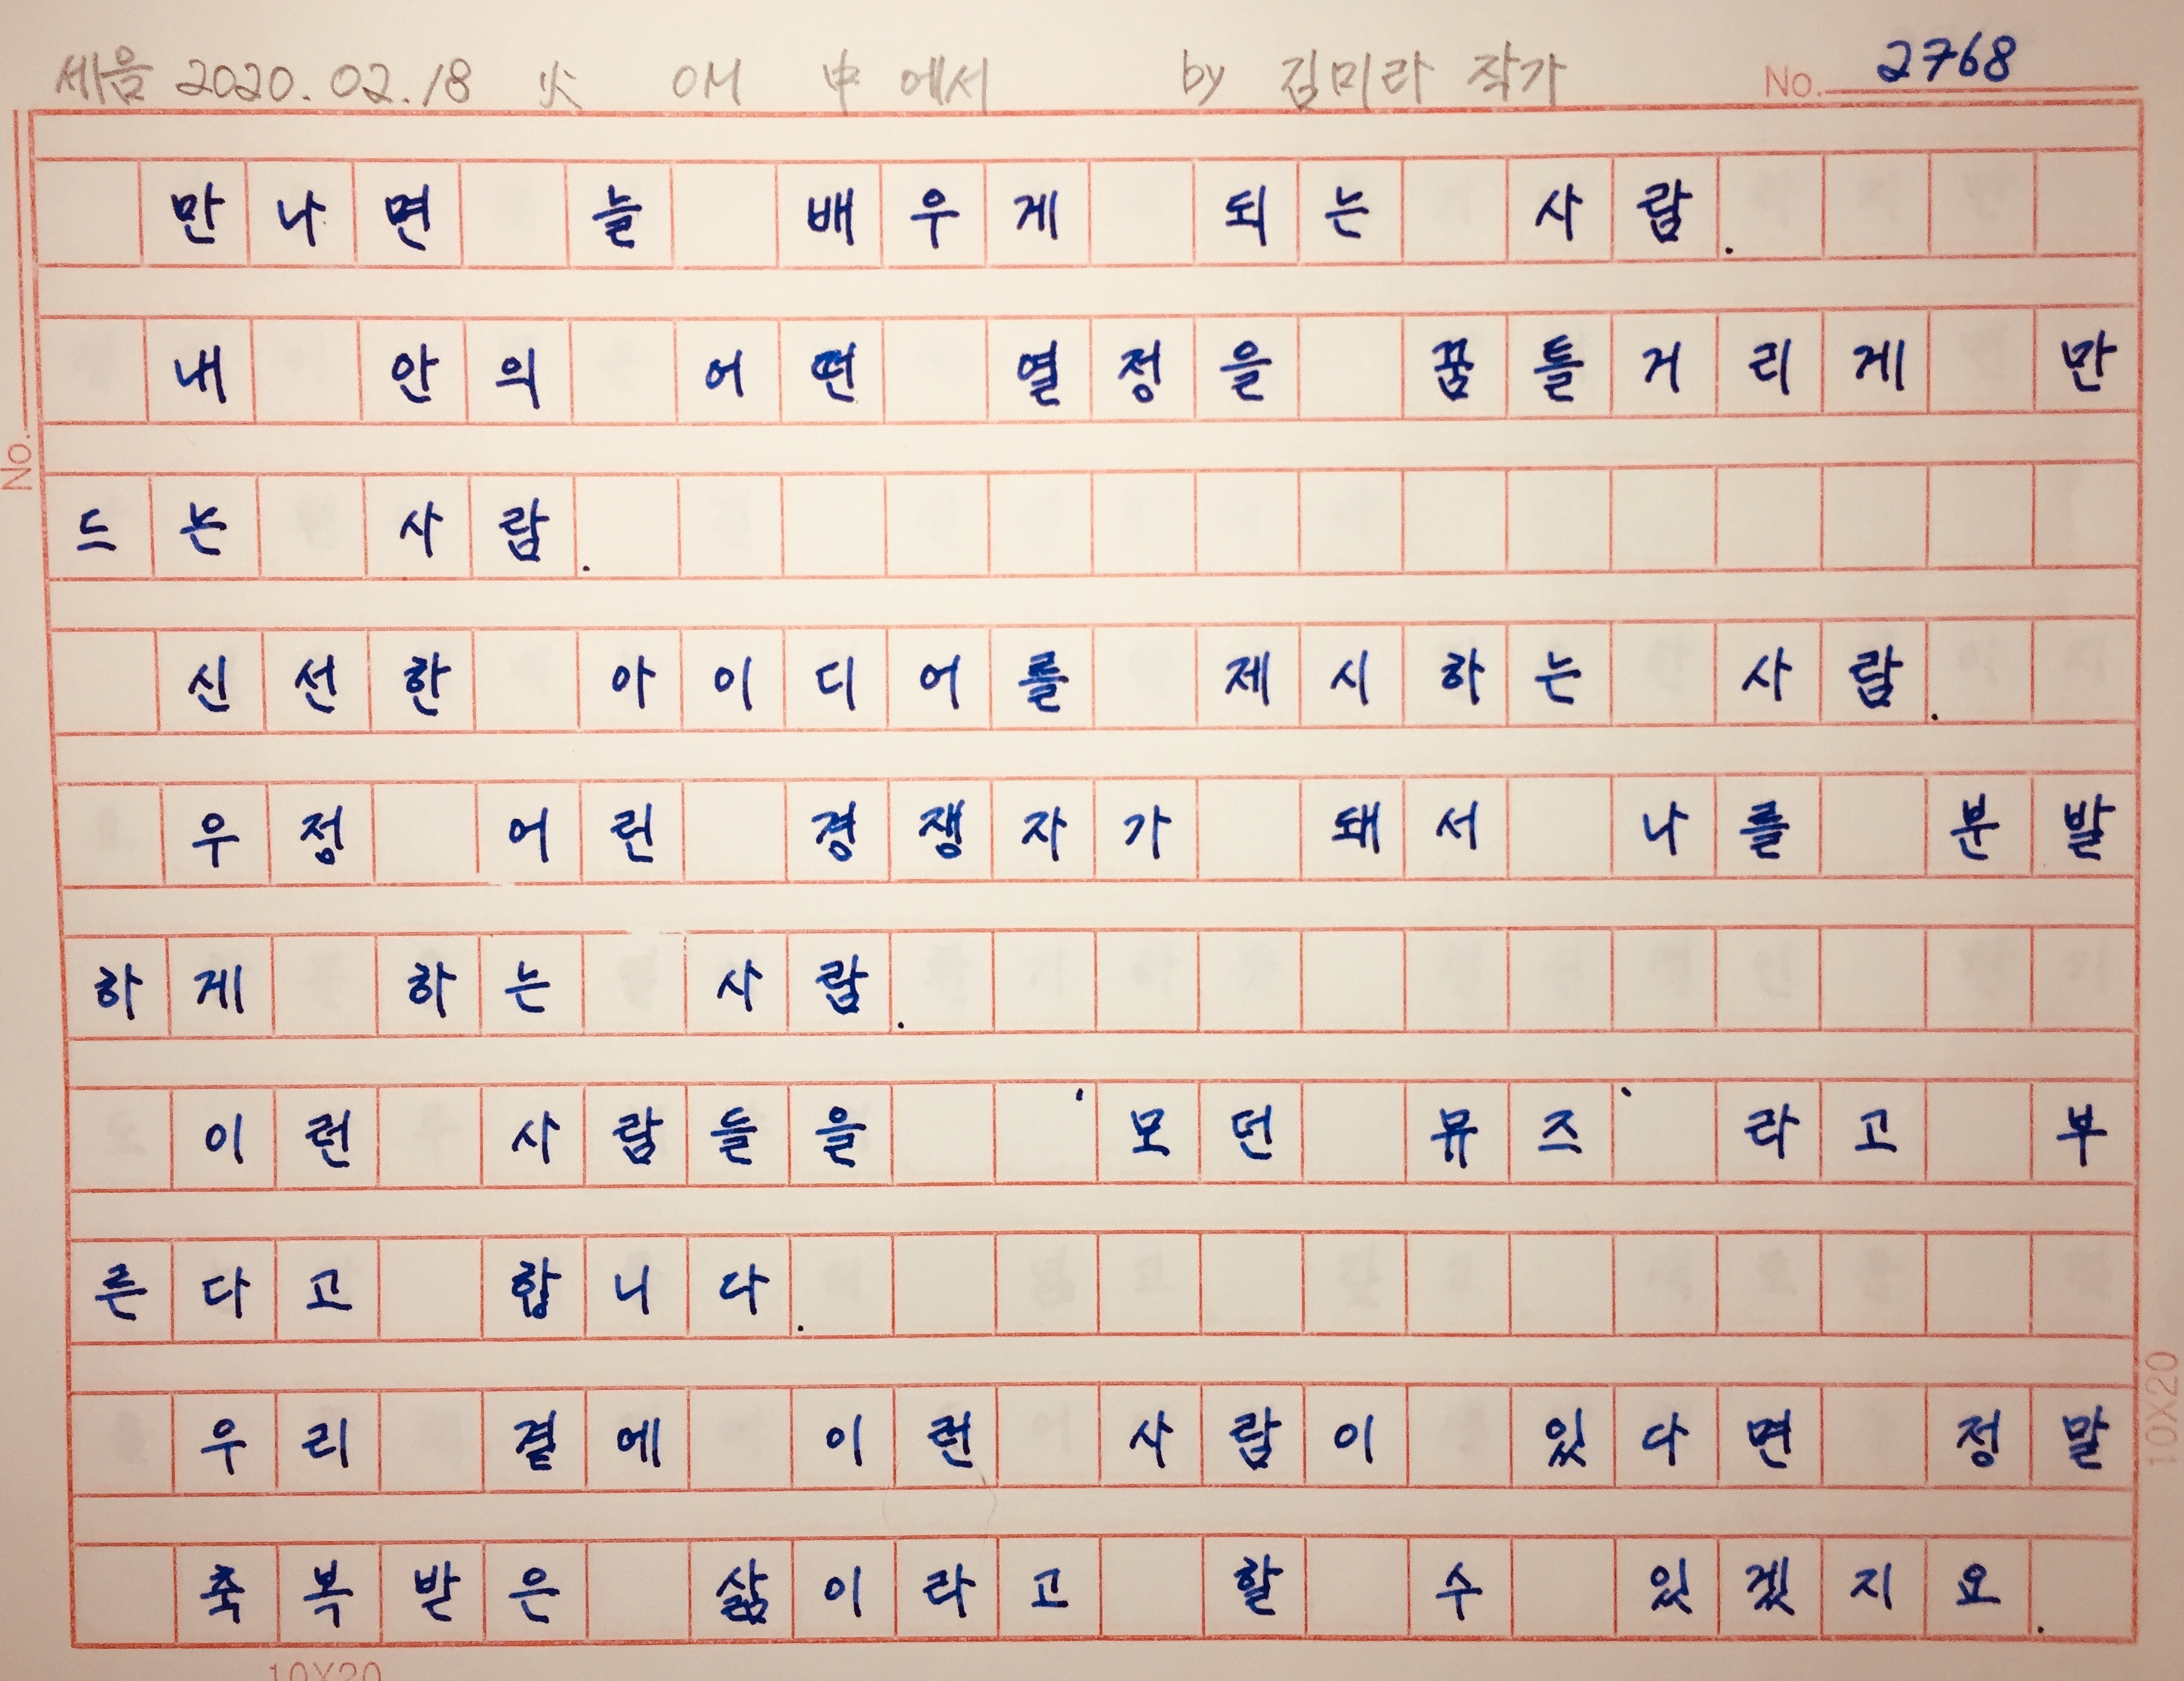 세음 2020.02.18 火 OM 中에서 by 김미라 작가 No. 2768
만나면 늘 배우게 되는 사람.
내 안의 어떤 열정을 꿈틀거리게 만
드는 사람.
No.
신선한 아이디어를 제시하는 사람.
우정 어린 경쟁자가 돼서 나를 분발
하게 하는 사람.
이런 사람들을 '모던 뮤즈'라고 부
른다고 합니다.
우리 곁에 이런 사람이 있다면 정말
축복받은 삶이라고 할 수 있겠지요.
10X20
10X20